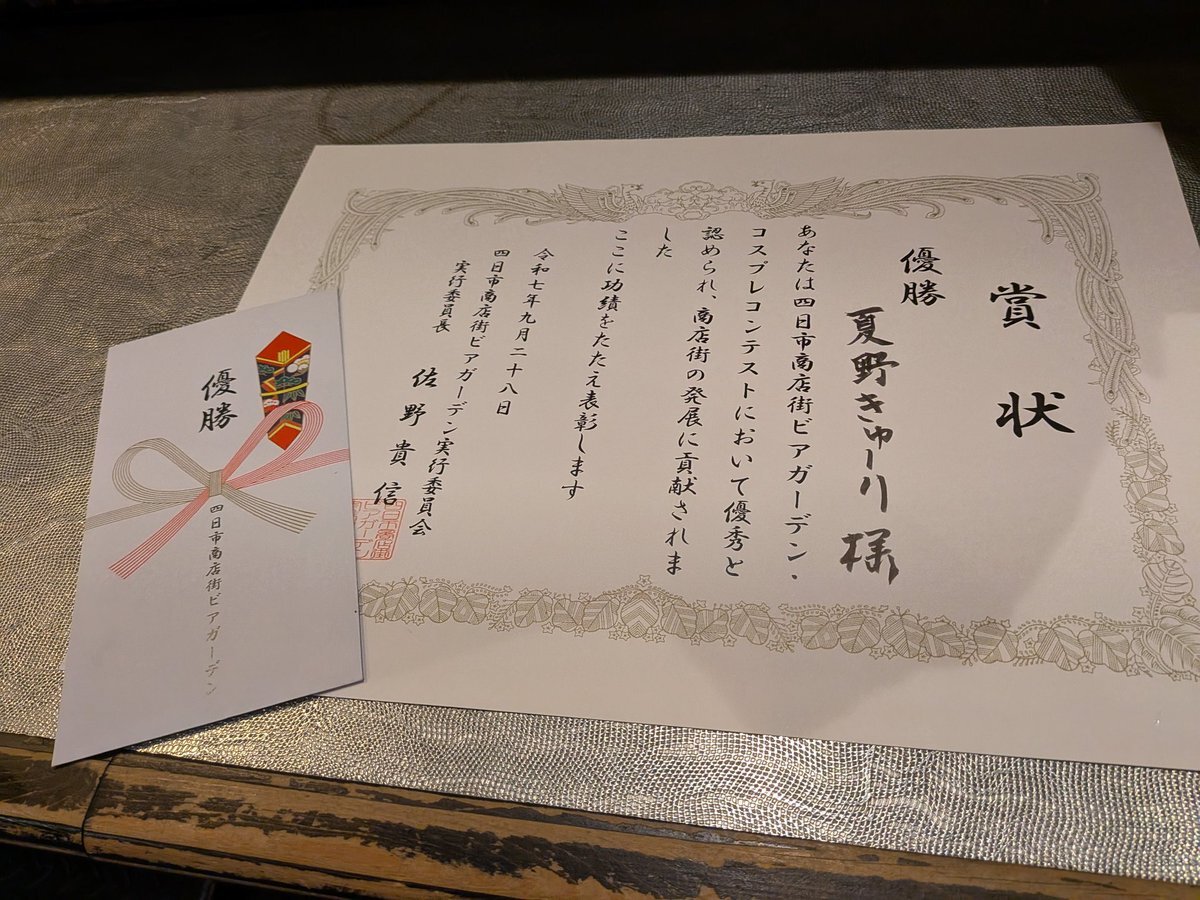 賞状
優勝
夏野きゅーり 様
あなたは四日市商店街ビアガーデン・
コスプレコンテストにおいて優秀と
認められ、商店街の発展に貢献されま
した
ここに功績をたたえ表彰します
令和七年九月二十八日
四日市商店街ビアガーデン実行委員会
実行委員長 佐野貴信
優勝
四日市商店街ビアガーデン